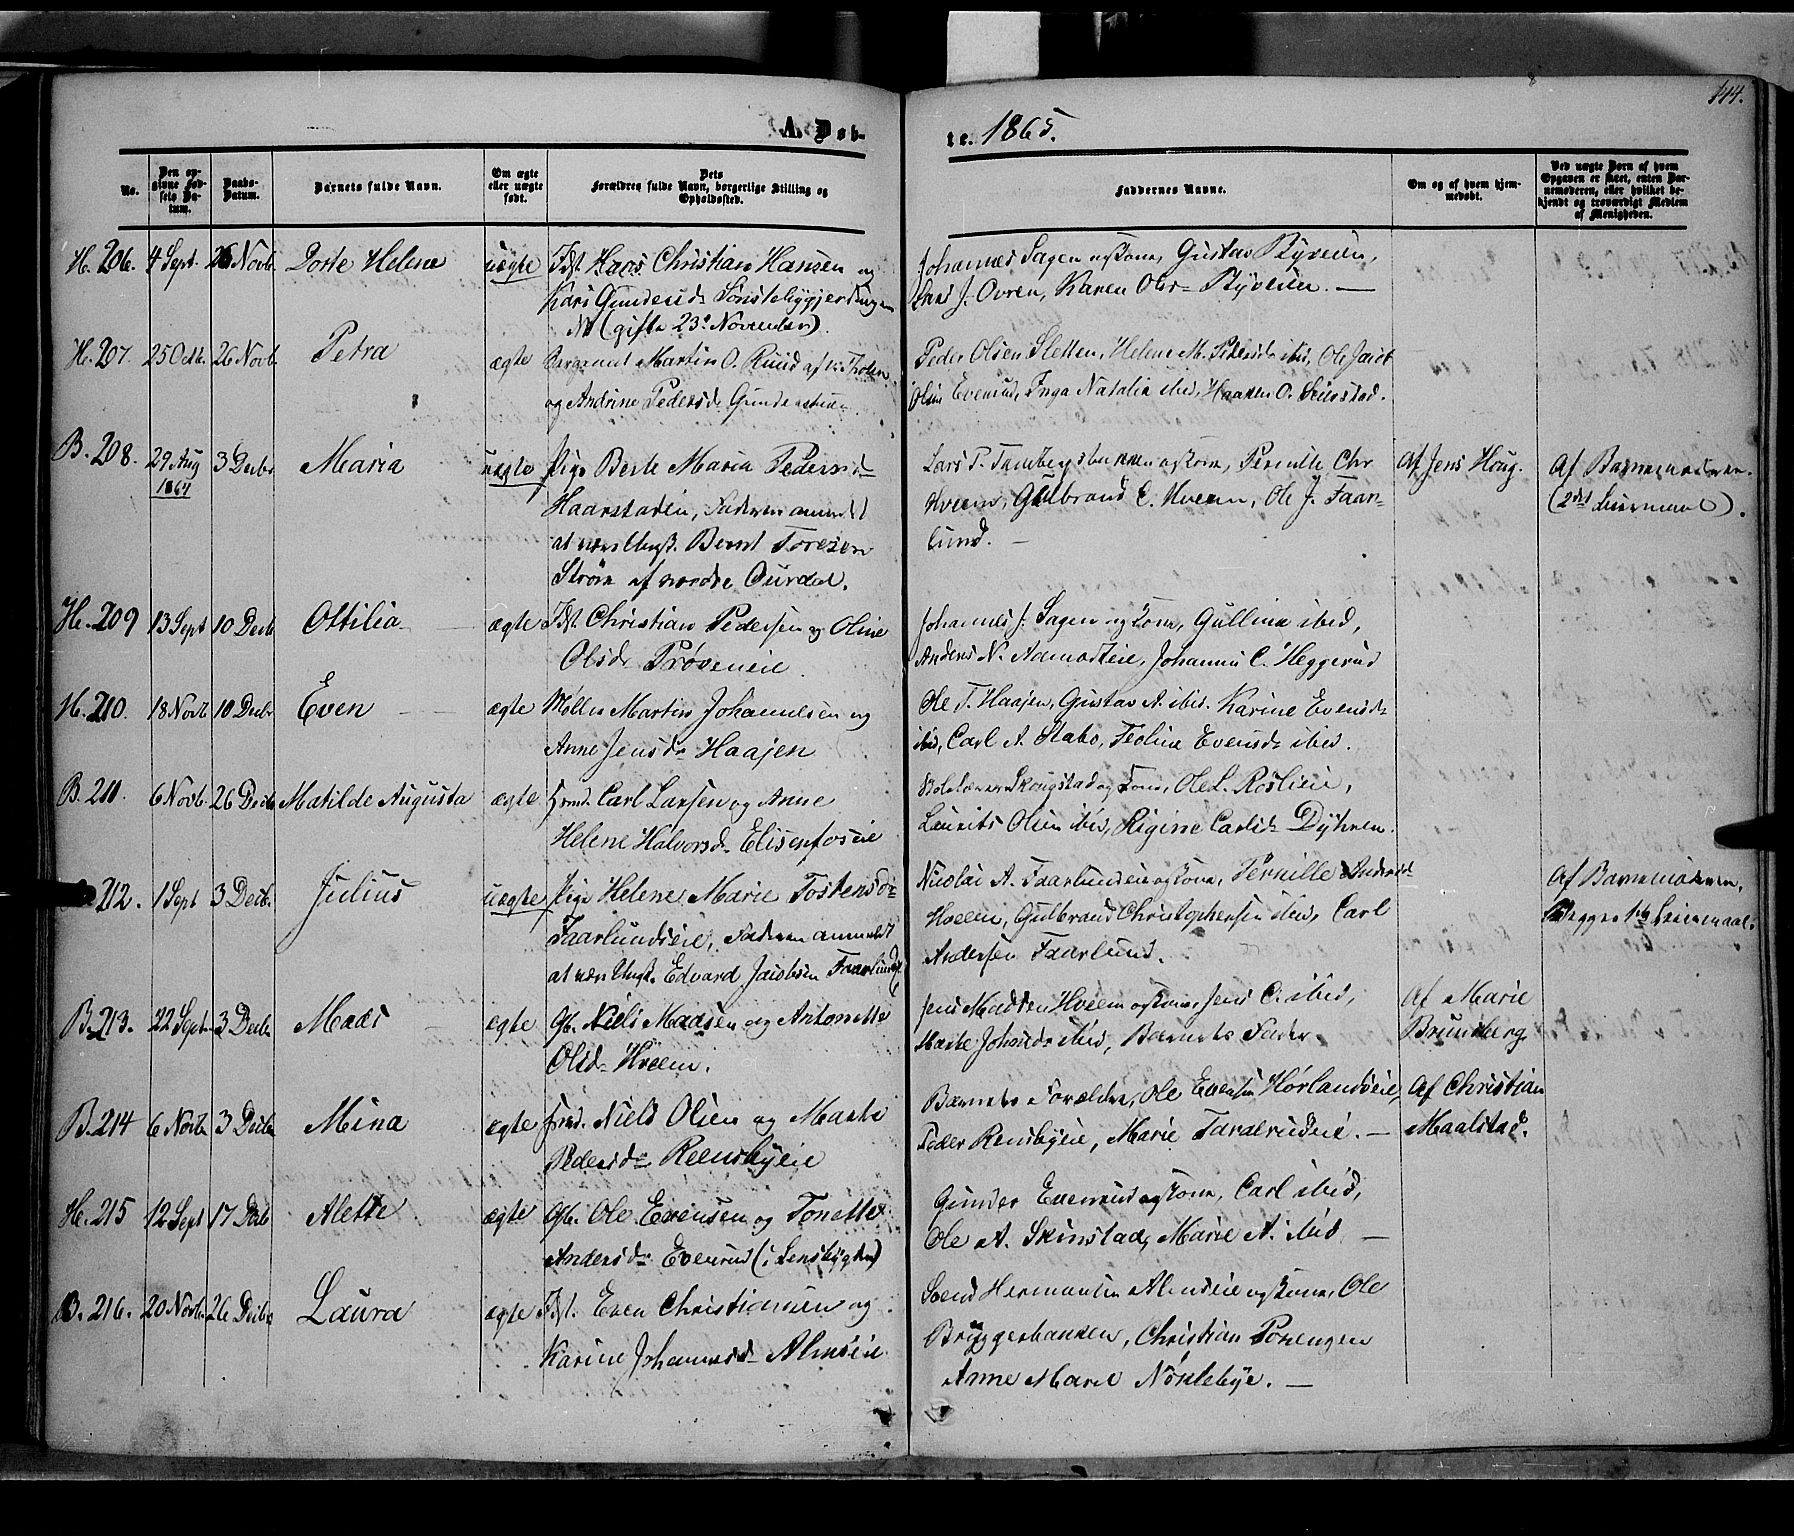 144.
A. Døb-
te. 1865.
No.
Den op-
givne Fød-
sels Da-
tum.
Daabs-
Datum.
Barnets fulde Navn.
Om ægte
eller uægte
født.
Dets
Forældres fulde Navn, borgerlige Stilling og
Opholdssted.
Faddernes Navne.
Om og af hvem hjem-
medøbt.
Ved uægte Børn af hvem
Opgaven er skeet, enten Bar-
nemoderen, eller hvilket be-
kjendt og troværdigt Medlem
af Menigheden.
H. 206. 4 Sept. 26 Novb. Dorte Helene uægte Idst. Hans Christian Hansen og
Kari Gundersd.
(gifte 23e November).
Johannes Sagen og Kone, Gustav
J. Ovren, Karen
H. 207. 25 Octb. 26 Novb. Petra ægte Sergeant Martin O. Ruud af
og Andrine Pedersd.
Peder Olsen Sletten, Helene M. Pedersd. ibid, Ole Jacob
Olsen Evenrud, Inga Natalia ibid, Haaken O.
B. 208. 29 Aug 1864 3 Decbr Maria uægte Pige Berte Maria Pedersd
Haarstadeie, Faderen anmeldt
at være Ungk. Bernt Toresen
Strøm af nordre Ourdal.
Lars P. og Kone, Pernille Chr
Hveem, Gulbrand C. Hveem, Ole J. Faar-
lund.
Af Jens Houg.
Af Barnemoderen.
(2det Leiermaal).
H. 209 13 Sept 10 Decb Ottilia ægte Idst. Christian Pedersen og Oline
Olsd. Prøveneie.
Johannes J. Sagen og Kone, Gulline ibid,
Anders N. Johannes C. Heggerud
H. 210. 18 Novb 10 Decbr Even ægte Møller Martin Johannesen og
Anne Jensd. Haajen
Ole T. Haajen, Gustav A. ibid. Karine Evensd.
ibid, Carl A. Stabo, Teoline Evensd. ibid.
B. 211. 6 Novb. 26 Decb Matilde Augusta ægte Carl Larsen og Anne
Helene Halvorsd. Elisenfoseie
Skolelærer Skougstad og Kone, Ole L. Roslieie,
Laurits Olsen ibid, Rigine Carlsd.
212. 1 Sept 3 Decb. Julius uægte Pige Helene Marie Tostensd.
Faarlundseie, Faderen anmeldt
at være Ungk. Edvard Jacobsen Faarlund
Nicolai A. Faarlundeie og Kone, Pernille Andersd.
Hveem, Gulbrand Christophersen ibid, Carl
Andersen Faarlund.
Af Barnemoderen,
Begges 1ste Leiermaal.
B. 213. 22 Sept. 3 Decbr Maas ægte Gb. Niels Maasen og Antonette
Olsd. Hveem.
Jens Madsen Hveem og Kone, Jens C. ibid,
Marte Johansd. ibid, Barnets Fader
Af Marie
Brundberg
B. 214 6 Novb 3 Decbr Mina ægte Niels Olsen og Marte
Pedersd. Reensbyeie
Barnets Forældre, Ole Evensen Hørlandseie,
Peder Rensbyeie, Marie Taralrudeie.
Af Christian
Maalstad.
H. 215 12 Sept 17 Decb Alette ægte Gb. Ole Evensen og Tonette
Andersd. Evenrud
Gunder Evenrud og Kone, Carl ibid,
Ole A. Skinstad, Marie A. ibid
B. 216. 20 Novbr. 26 Decbr Laura ægte Idst. Even Christiansen og
Karine Johannesd. Alm
Svend Hermansen og Kone, Ole
Bryggerbakken, Christian Porengen
Anne Marie Nørdebye.